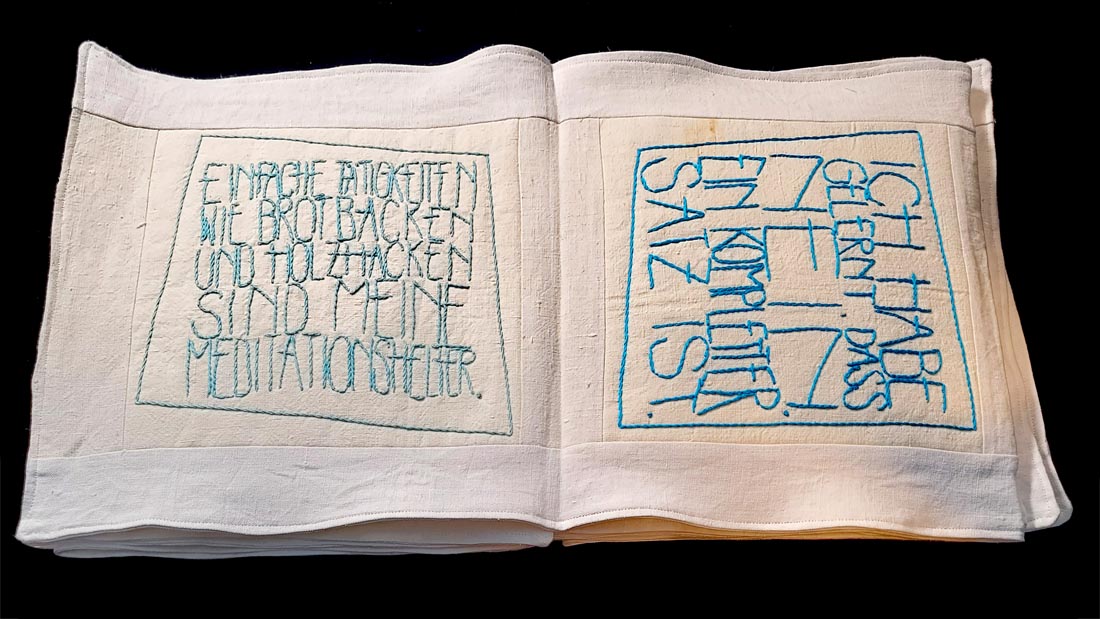 EINFACHE TÄTIGKEITEN
WIE BROTBACKEN
UND HOLZHACKEN
SIND MEINE
MEDITATIONSHELFER.
ICH HABE
GELERNT, DASS
NEIN.
EIN KOMPLETTER
SATZ IST.